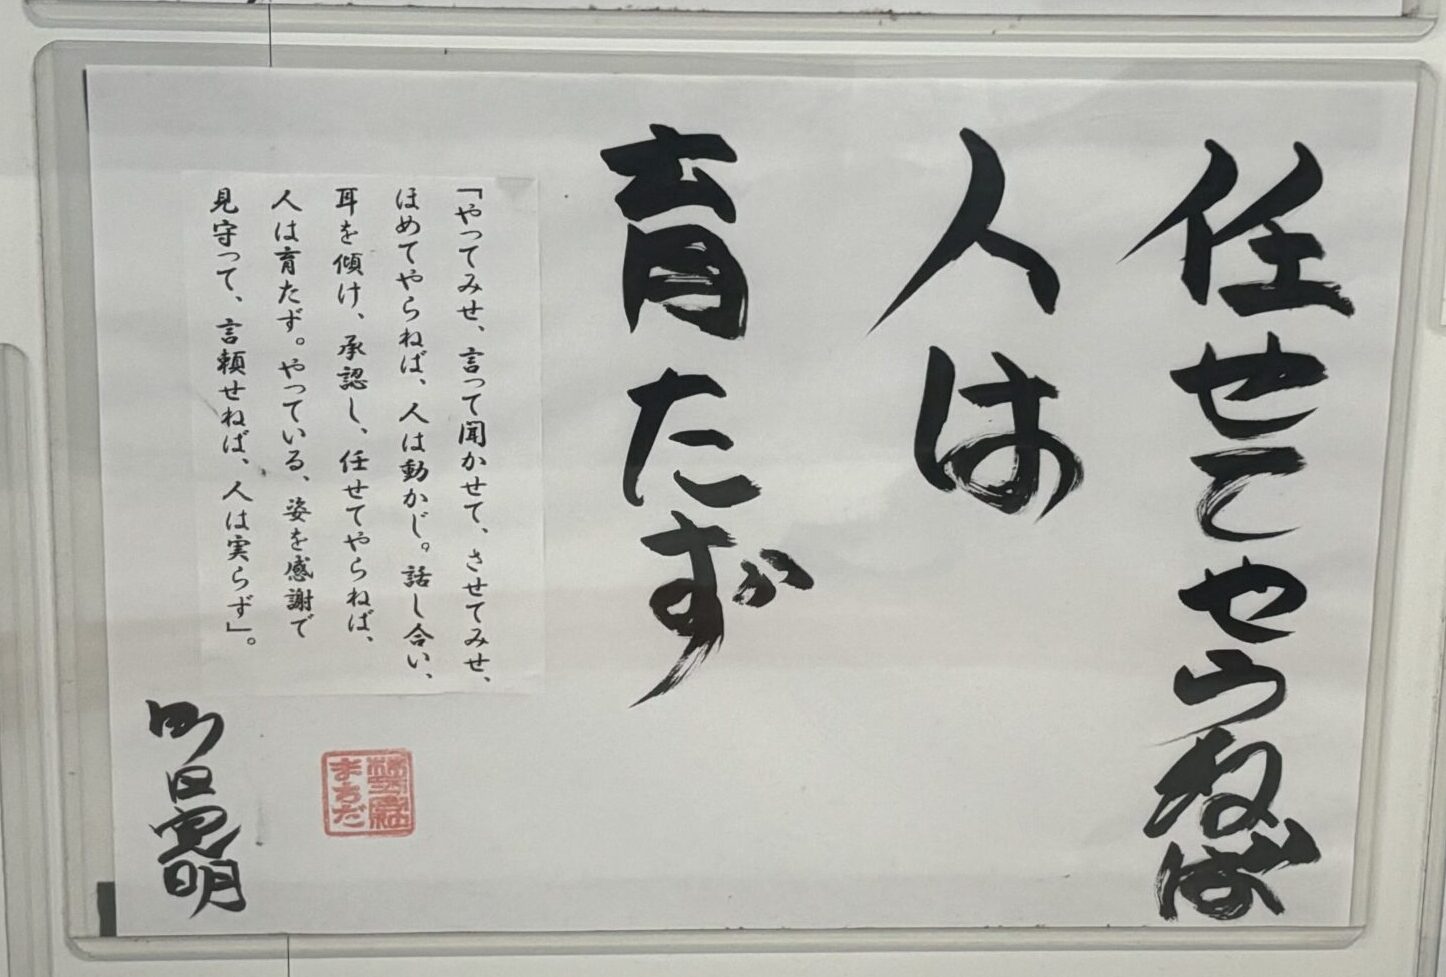 任せてやらねば
人は
育たず
「やってみせ、言って聞かせて、させてみせ、
ほめてやらねば、人は動かじ。話し合い、
耳を傾け、承認し、任せてやらねば、
人は育たず。やっている、姿を感謝で
見守って、言頼せねば、人は実らず」。
町田寛明
株式会社
まちだ